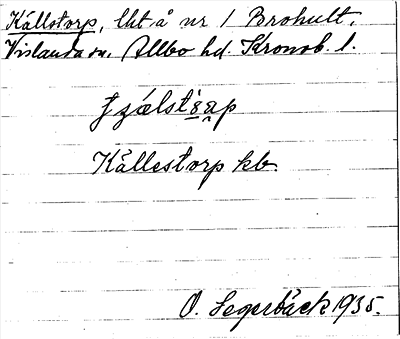 Källstorp, lht å nr 1 Brohult.
Vislanda sn. Allbo hd. Kronob. l.
Källestorp kb.
O. Segerbäck 1935.